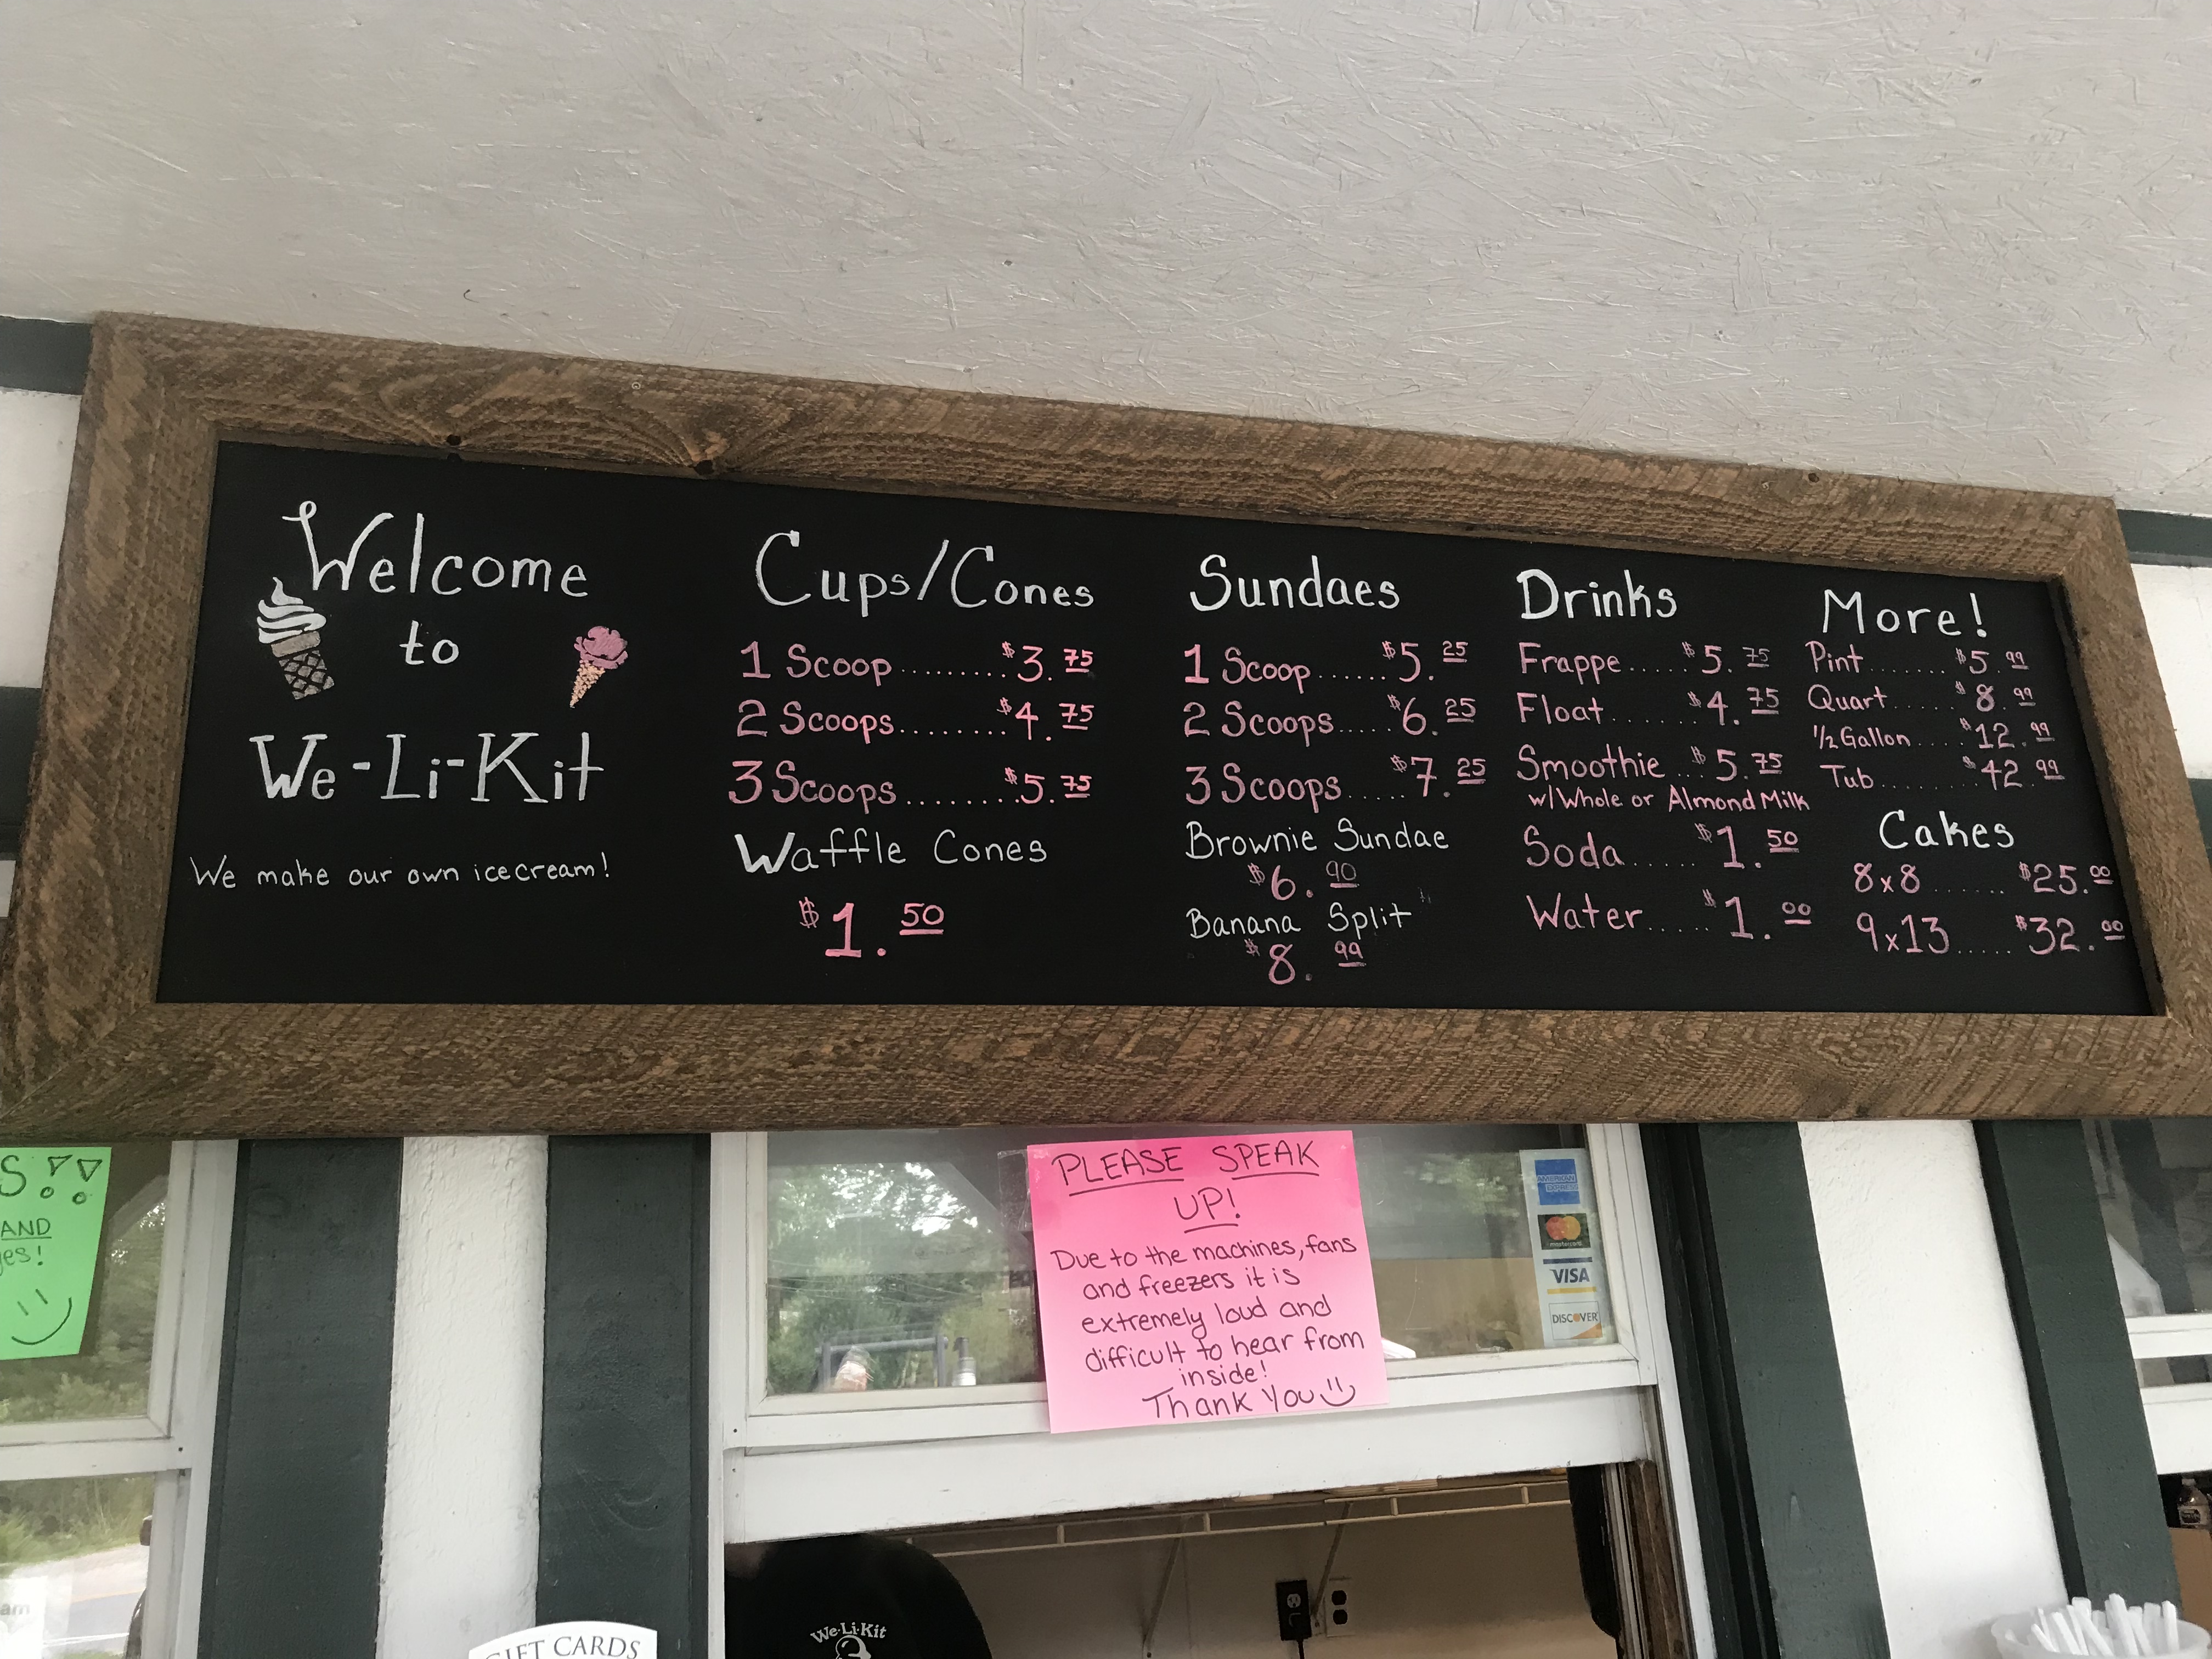 Welcome
to
We-Li-Kit
We make our own icecream!
Cups/Cones
1 Scoop.........$3.75
2 Scoops.........$4.75
3 Scoops.........$5.75
Waffle Cones
$1.50
Sundaes
1 Scoop......$5.25
2 Scoops.....$6.25
3 Scoops.....$7.25
Brownie Sundae
$6.90
Banana Split
$8.99
Drinks
Frappe....$5.75
Float......$4.75
Smoothie...$5.75
w/Whole or Almond Milk
Soda.....$1.50
Water.....$1.00
More!
Pint.......$5.99
Quart.....$8.99
1/2 Gallon....$12.99
Tub........$42.99
Cakes
8x8......$25.00
9x13.....$32.00
PLEASE SPEAK
UP!
Due to the machines, fans
and freezers it is
extremely loud and
difficult to hear from
inside!
Thank You
AMERICAN
EXPRESS
mastercard
VISA
DISCOVER
S!!
AND
es!
We-Li-Kit
GIFT CARDS
am